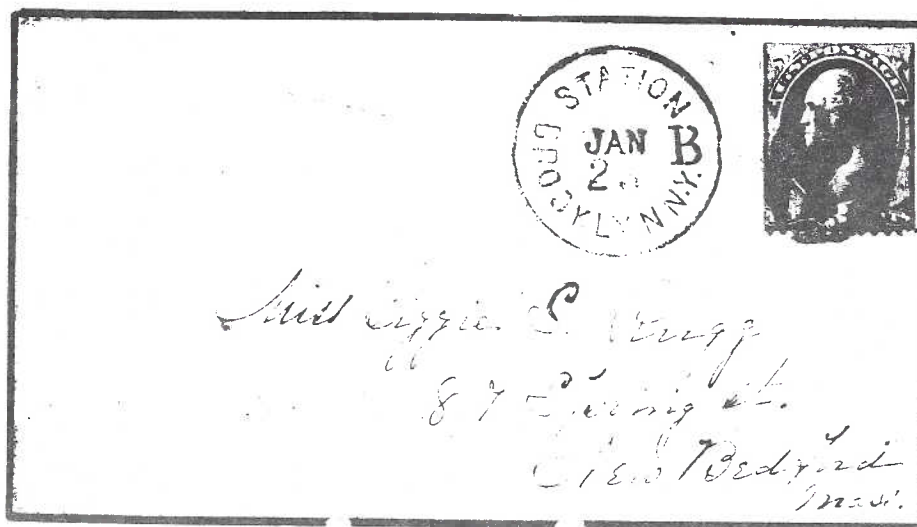 STATION B
JAN
2
BROOKLYN N.Y.
Miss Lizzie S.
87 Spring St.
New Bedford
Mass.